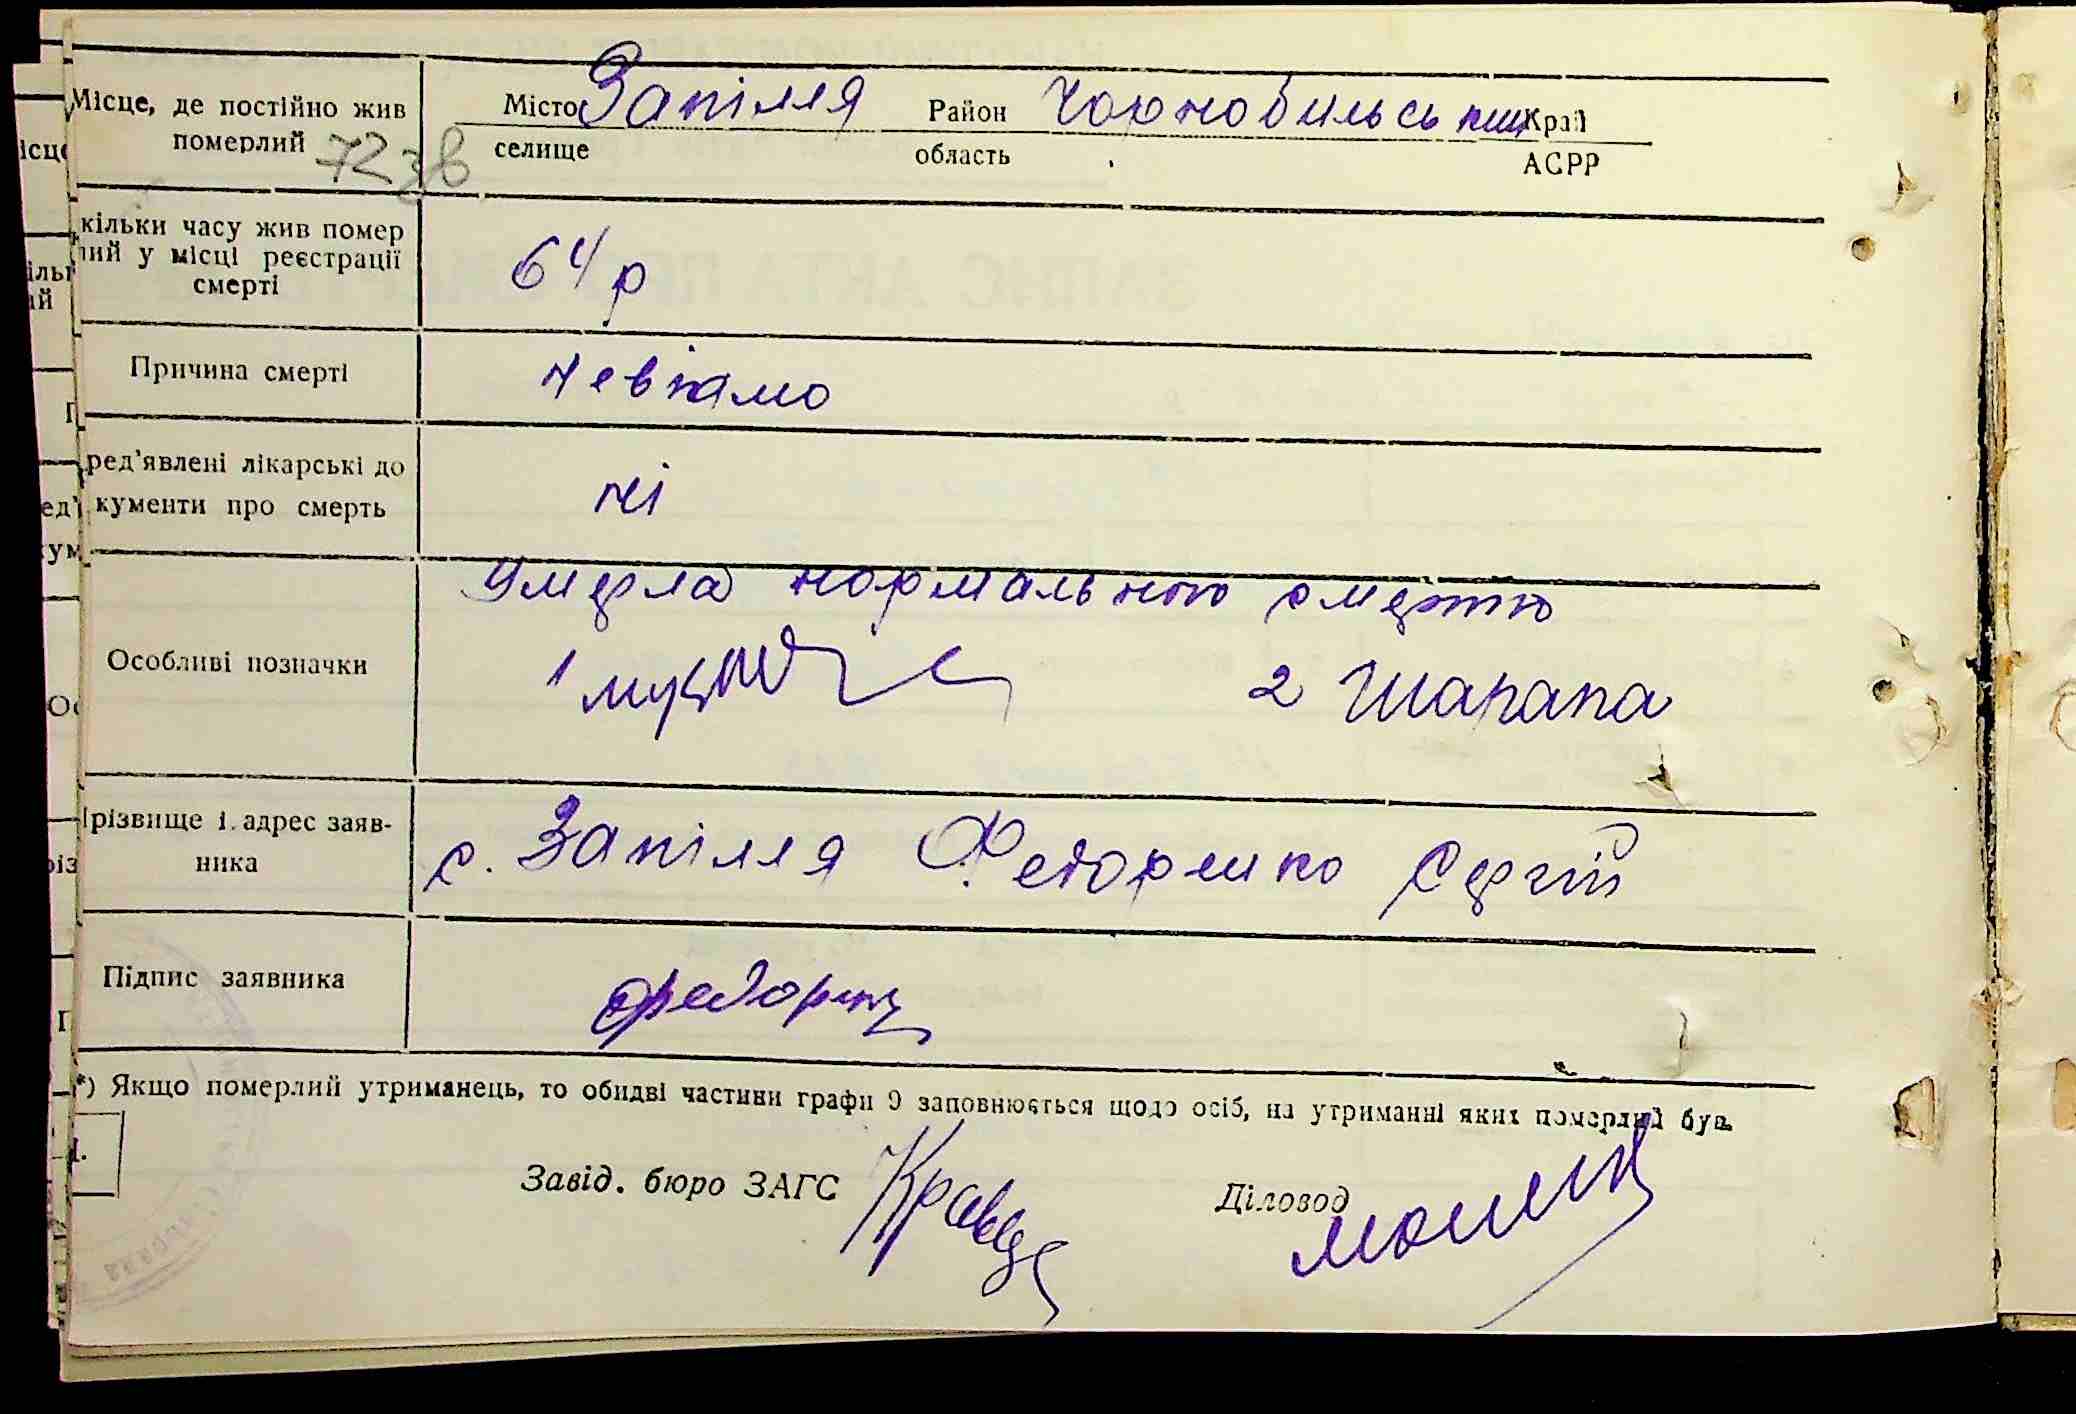 Місце, де постійно жив
померлий 72 зв
Місто Запілля Район Чорнобильський Край
селище область АСРР
кільки часу жив помер
лий у місці реєстрації
смерті
64 р
Причина смерті
невіамо
ред'явлені лікарські до
кументи про смерть
ні
Особливі позначки
Умерла нормальною смертю
1 2 Шарапа
різвище і адрес заяв-
ника
с. Запілля Федоренко Сергій
Підпис заявника
*) Якщо померлий утриманець, то обидві частини графи 9 заповнюється щодо осіб, на утриманні яких померлий був.
Завід. бюро ЗАГС Кравец
Діловод